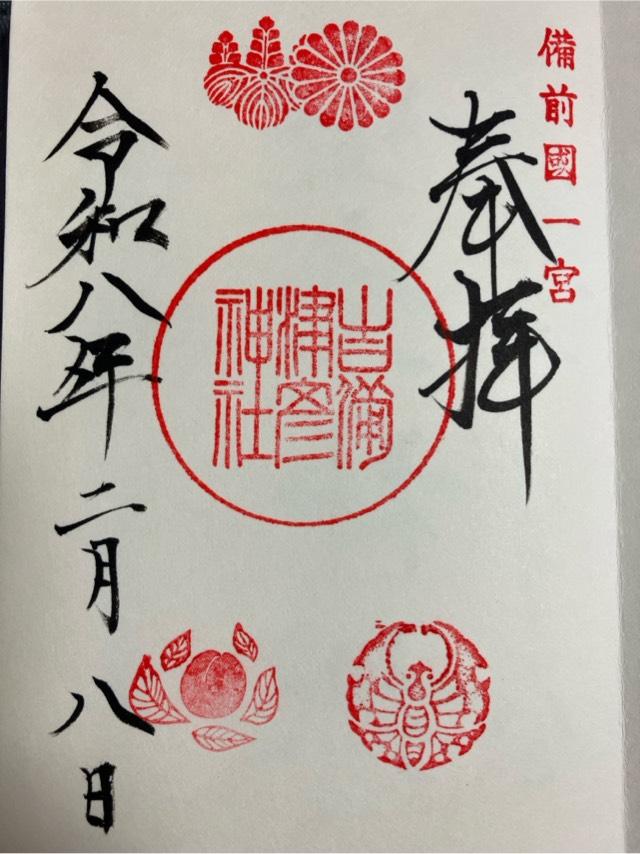 備前國一宮
奉拝
吉備
津彦
神社
令和八年二月八日